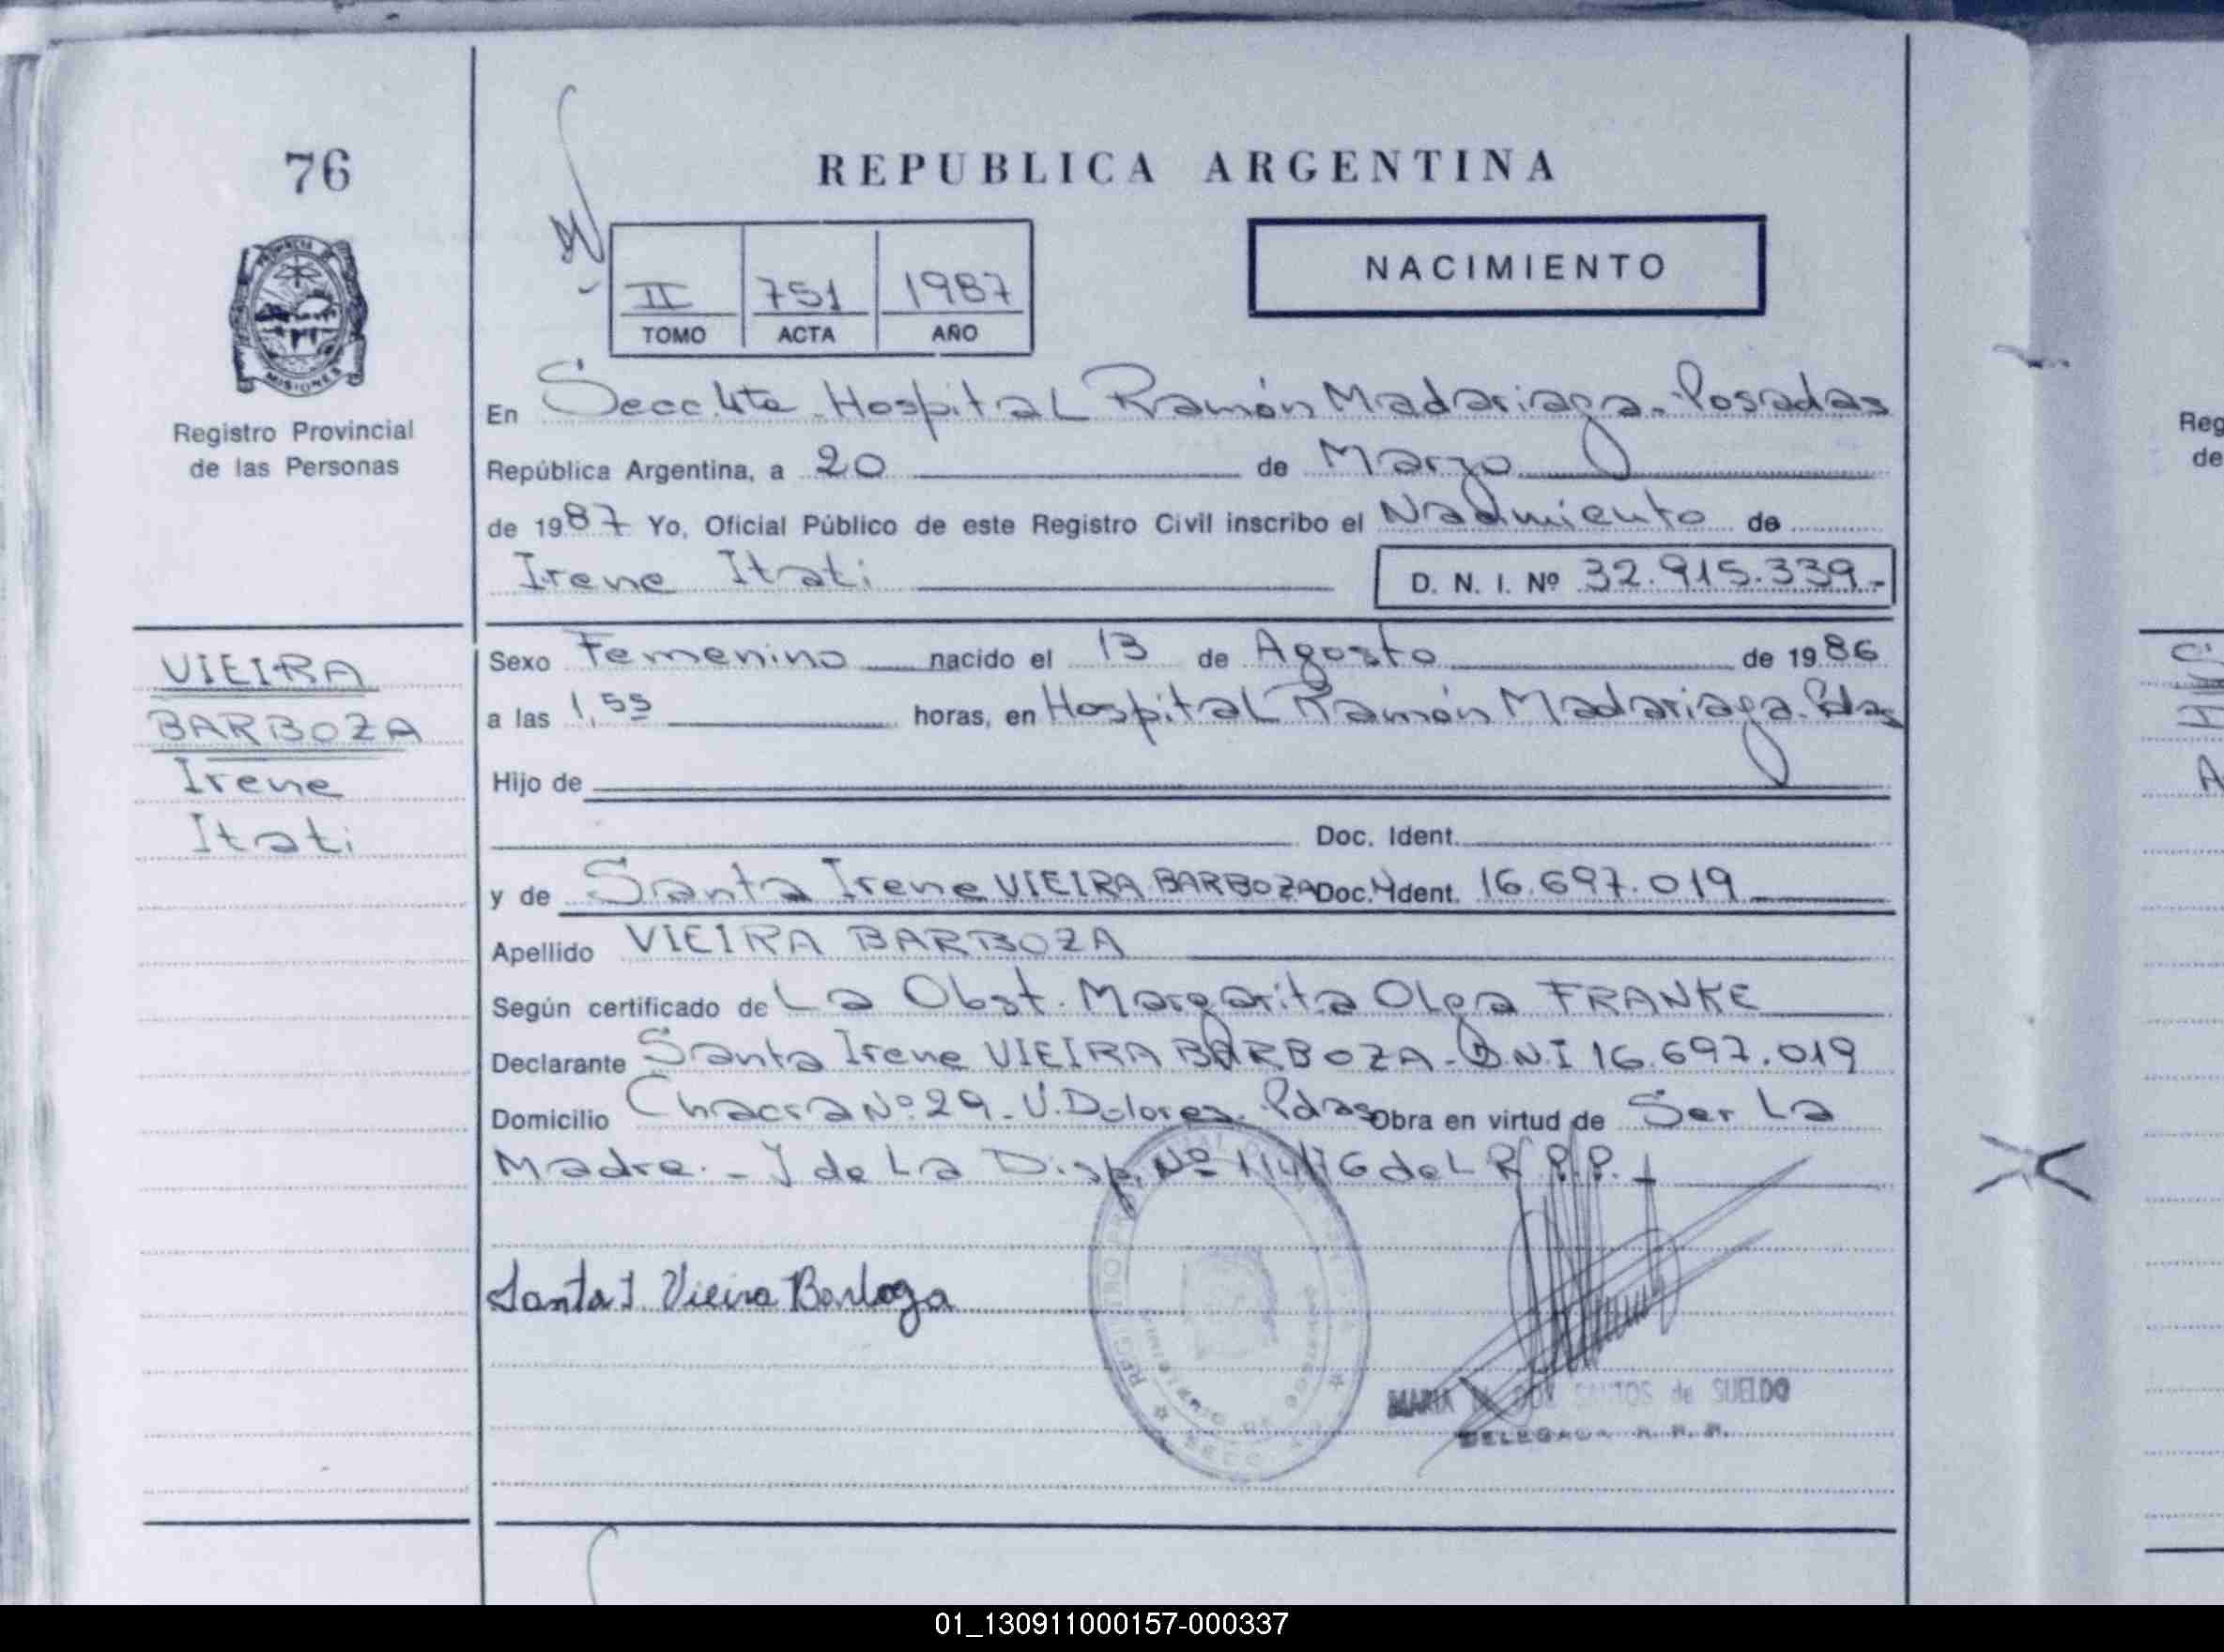 76
REPUBLICA ARGENTINA
II 751 1987
TOMO ACTA AÑO
NACIMIENTO
PROVINCIA DE
MISIONES
Registro Provincial
de las Personas
En Secc. 4ta - Hospital Ramón Madariaga - Posadas
República Argentina, a 20 de Marzo
de 1987 Yo, Oficial Público de este Registro Civil inscribo el Nacimiento de
Irene Itati D. N. I. Nº 32.915.339.-
VIEIRA
BARBOZA
Irene
Itati
Sexo Femenino nacido el 13 de Agosto de 1986
a las 1,55 horas, en Hospital Ramón Madariaga. Pdas
Hijo de
Doc. Ident.
y de Santa Irene VIEIRA BARBOZA Doc. Ident. 16.697.019
Apellido VIEIRA BARBOZA
Según certificado de La Obst. Margarita Olga FRANKE
Declarante Santa Irene VIEIRA BARBOZA - D.N.I 16.697.019
Domicilio Chacra Nº 29 - V. Dolores. Pdas Obra en virtud de Ser La
Madre. - de La Disp. Nº del R.P.P.
Santa I Vieira Barboza
REGISTRO
MARIA SANTOS de SUELDO
DELEGADA
Reg
de
01_130911000157-000337